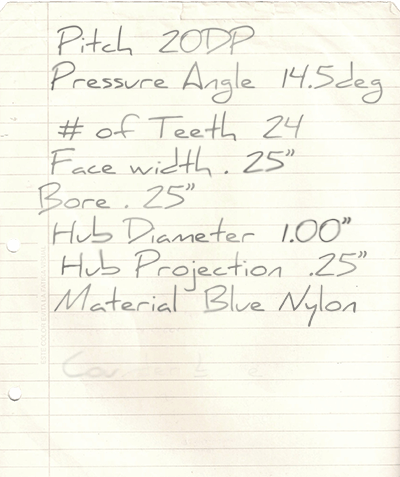 Pitch 20DP
Pressure Angle 14.5deg
# of Teeth 24
Face width .25"
Bore .25"
Hub Diameter 1.00"
Hub Projection .25"
Material Blue Nylon